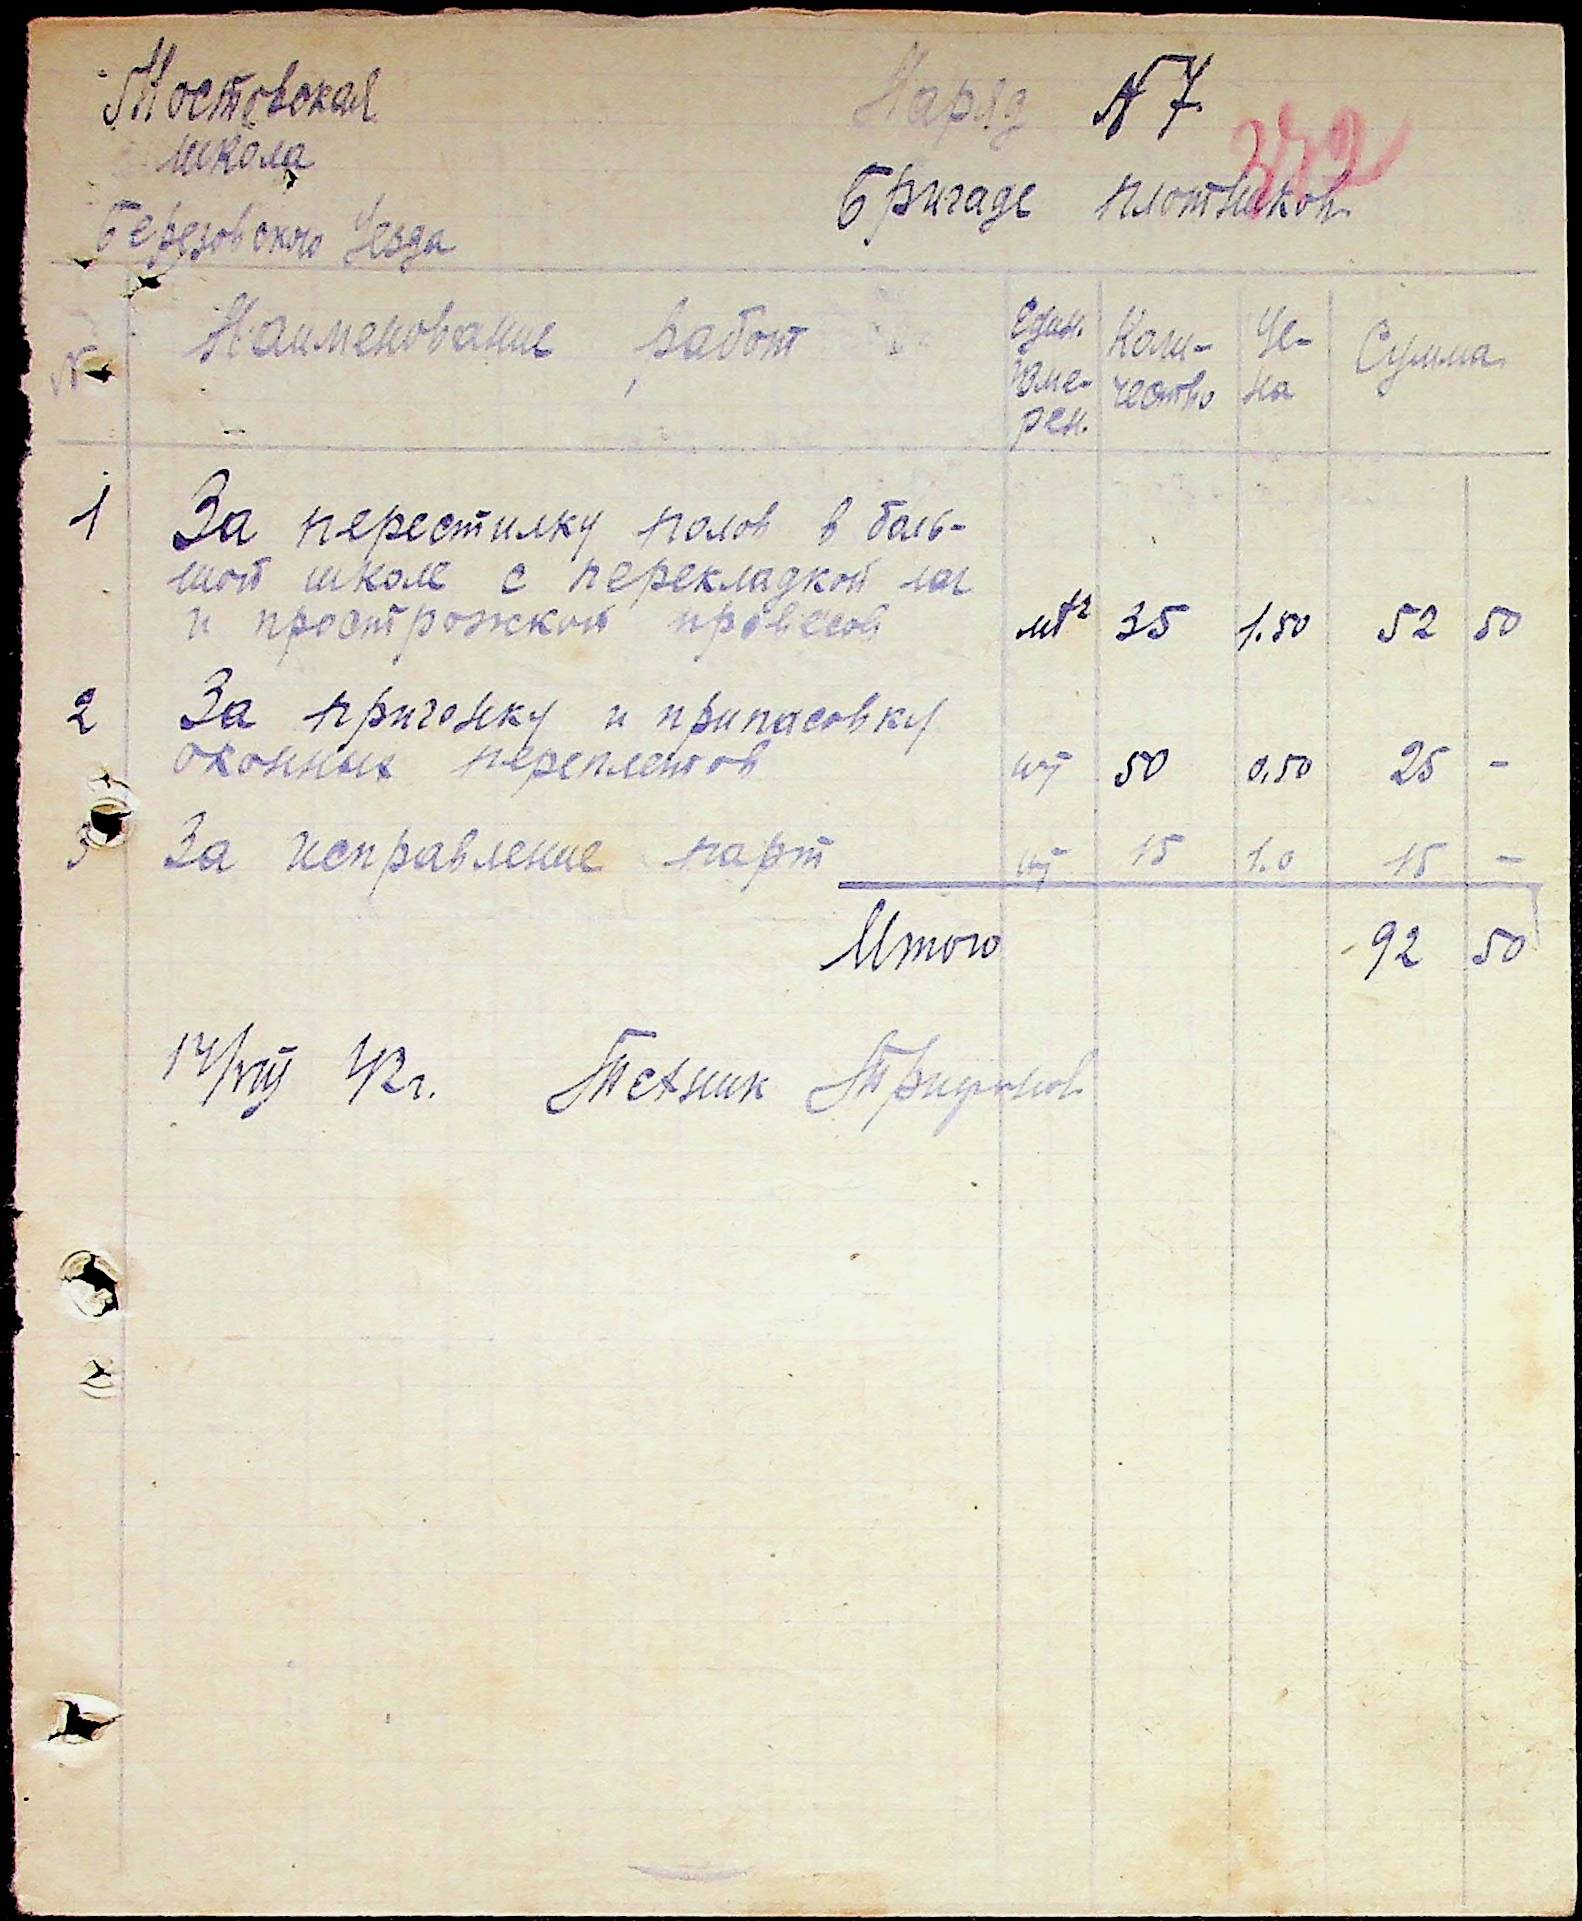 Мостовская
школа
Березовского Уезда
Наряд № 7.
372
Бригаде плотников.
№ Наименование работ Един. изме-рен. Коли-чество Це-на Сумма
1 За перестилку полов в боль-
шой школе с перекладкой лаг
и прострожкой провесов мт² 35 1.50 52 50
2 За пригонку и припасовку
оконных переплетов шт 50 0.50 25 -
3 За исправление парт шт 15 1.0 15 -
Итого 92 50
14/VIII 42 г. Техник